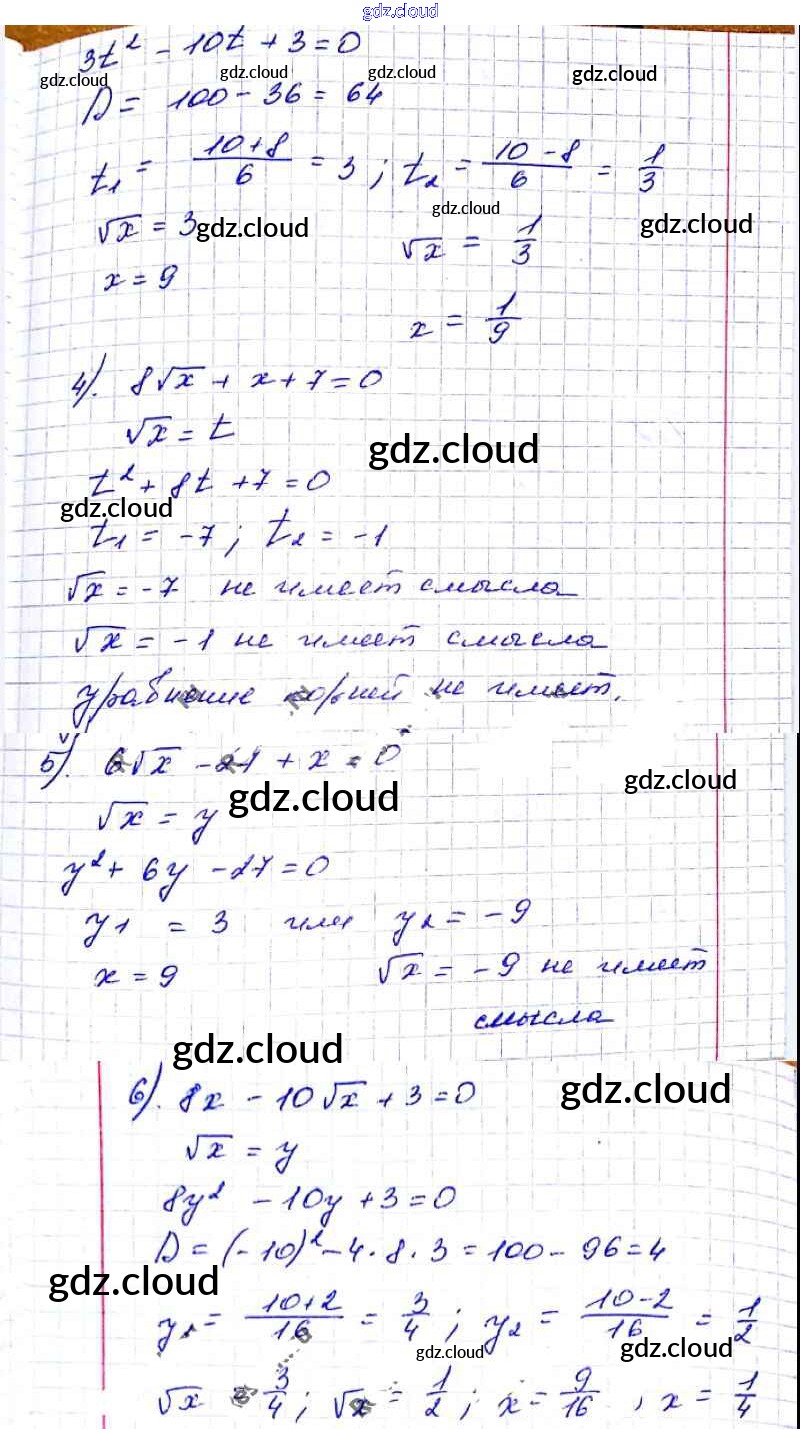 gdz.cloud
3t² - 10t + 3 = 0
gdz.cloud gdz.cloud gdz.cloud gdz.cloud
D = 100 - 36 = 64
t₁ = (10+8)/6 = 3 ; t₂ = (10-8)/6 = 1/3
gdz.cloud
√x = 3 gdz.cloud √x = 1/3 gdz.cloud
x = 9
x = 1/9
4). 8√x + x + 7 = 0
√x = t
gdz.cloud
t² + 8t + 7 = 0
gdz.cloud
t₁ = -7 ; t₂ = -1
√x = -7 не имеет смысла
√x = -1 не имеет смысла
уравнение корней не имеет.
5). 6√x - 27 + x = 0
gdz.cloud gdz.cloud
√x = y
y² + 6y - 27 = 0
y₁ = 3 или y₂ = -9
x = 9 √x = -9 не имеет
смысла
gdz.cloud
6). 8x - 10√x + 3 = 0 gdz.cloud
√x = y
8y² - 10y + 3 = 0
D = (-10)² - 4·8·3 = 100 - 96 = 4
gdz.cloud
y₁ = (10+2)/16 = 3/4 ; y₂ = (10-2)/16 = 1/2
gdz.cloud gdz.cloud
√x = 3/4 ; √x = 1/2 ; x = 9/16 , x = 1/4